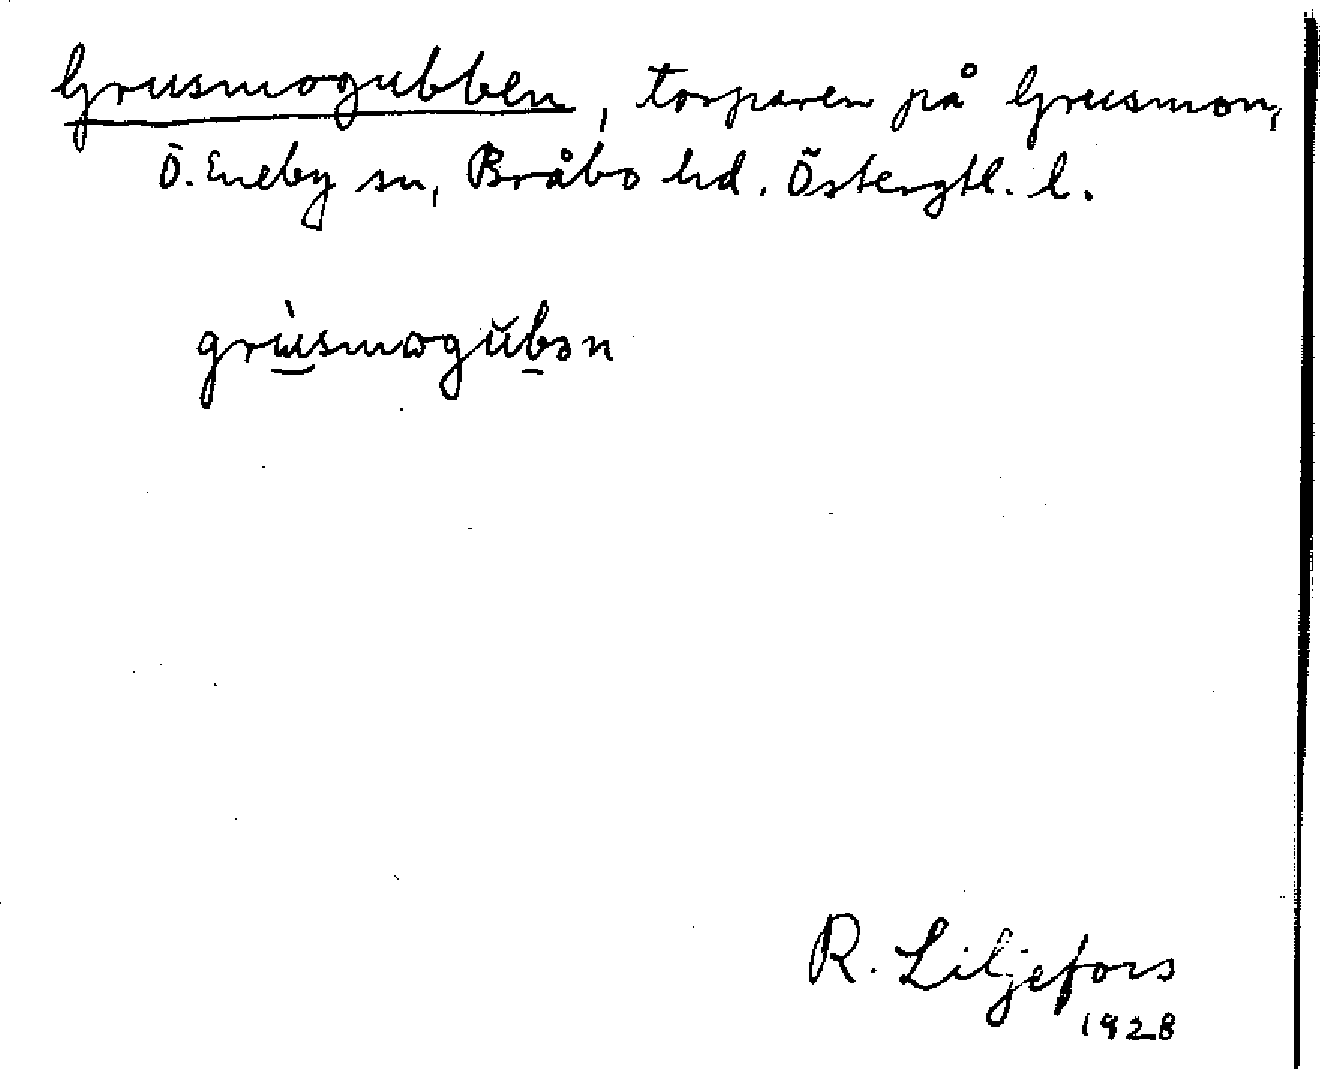 Grusmogubben, torparen på Grusmon,
Ö. Eneby sn, Bråbo hd. Östergtl. l.
grùsmogŭbən
R. Liljefors
1928